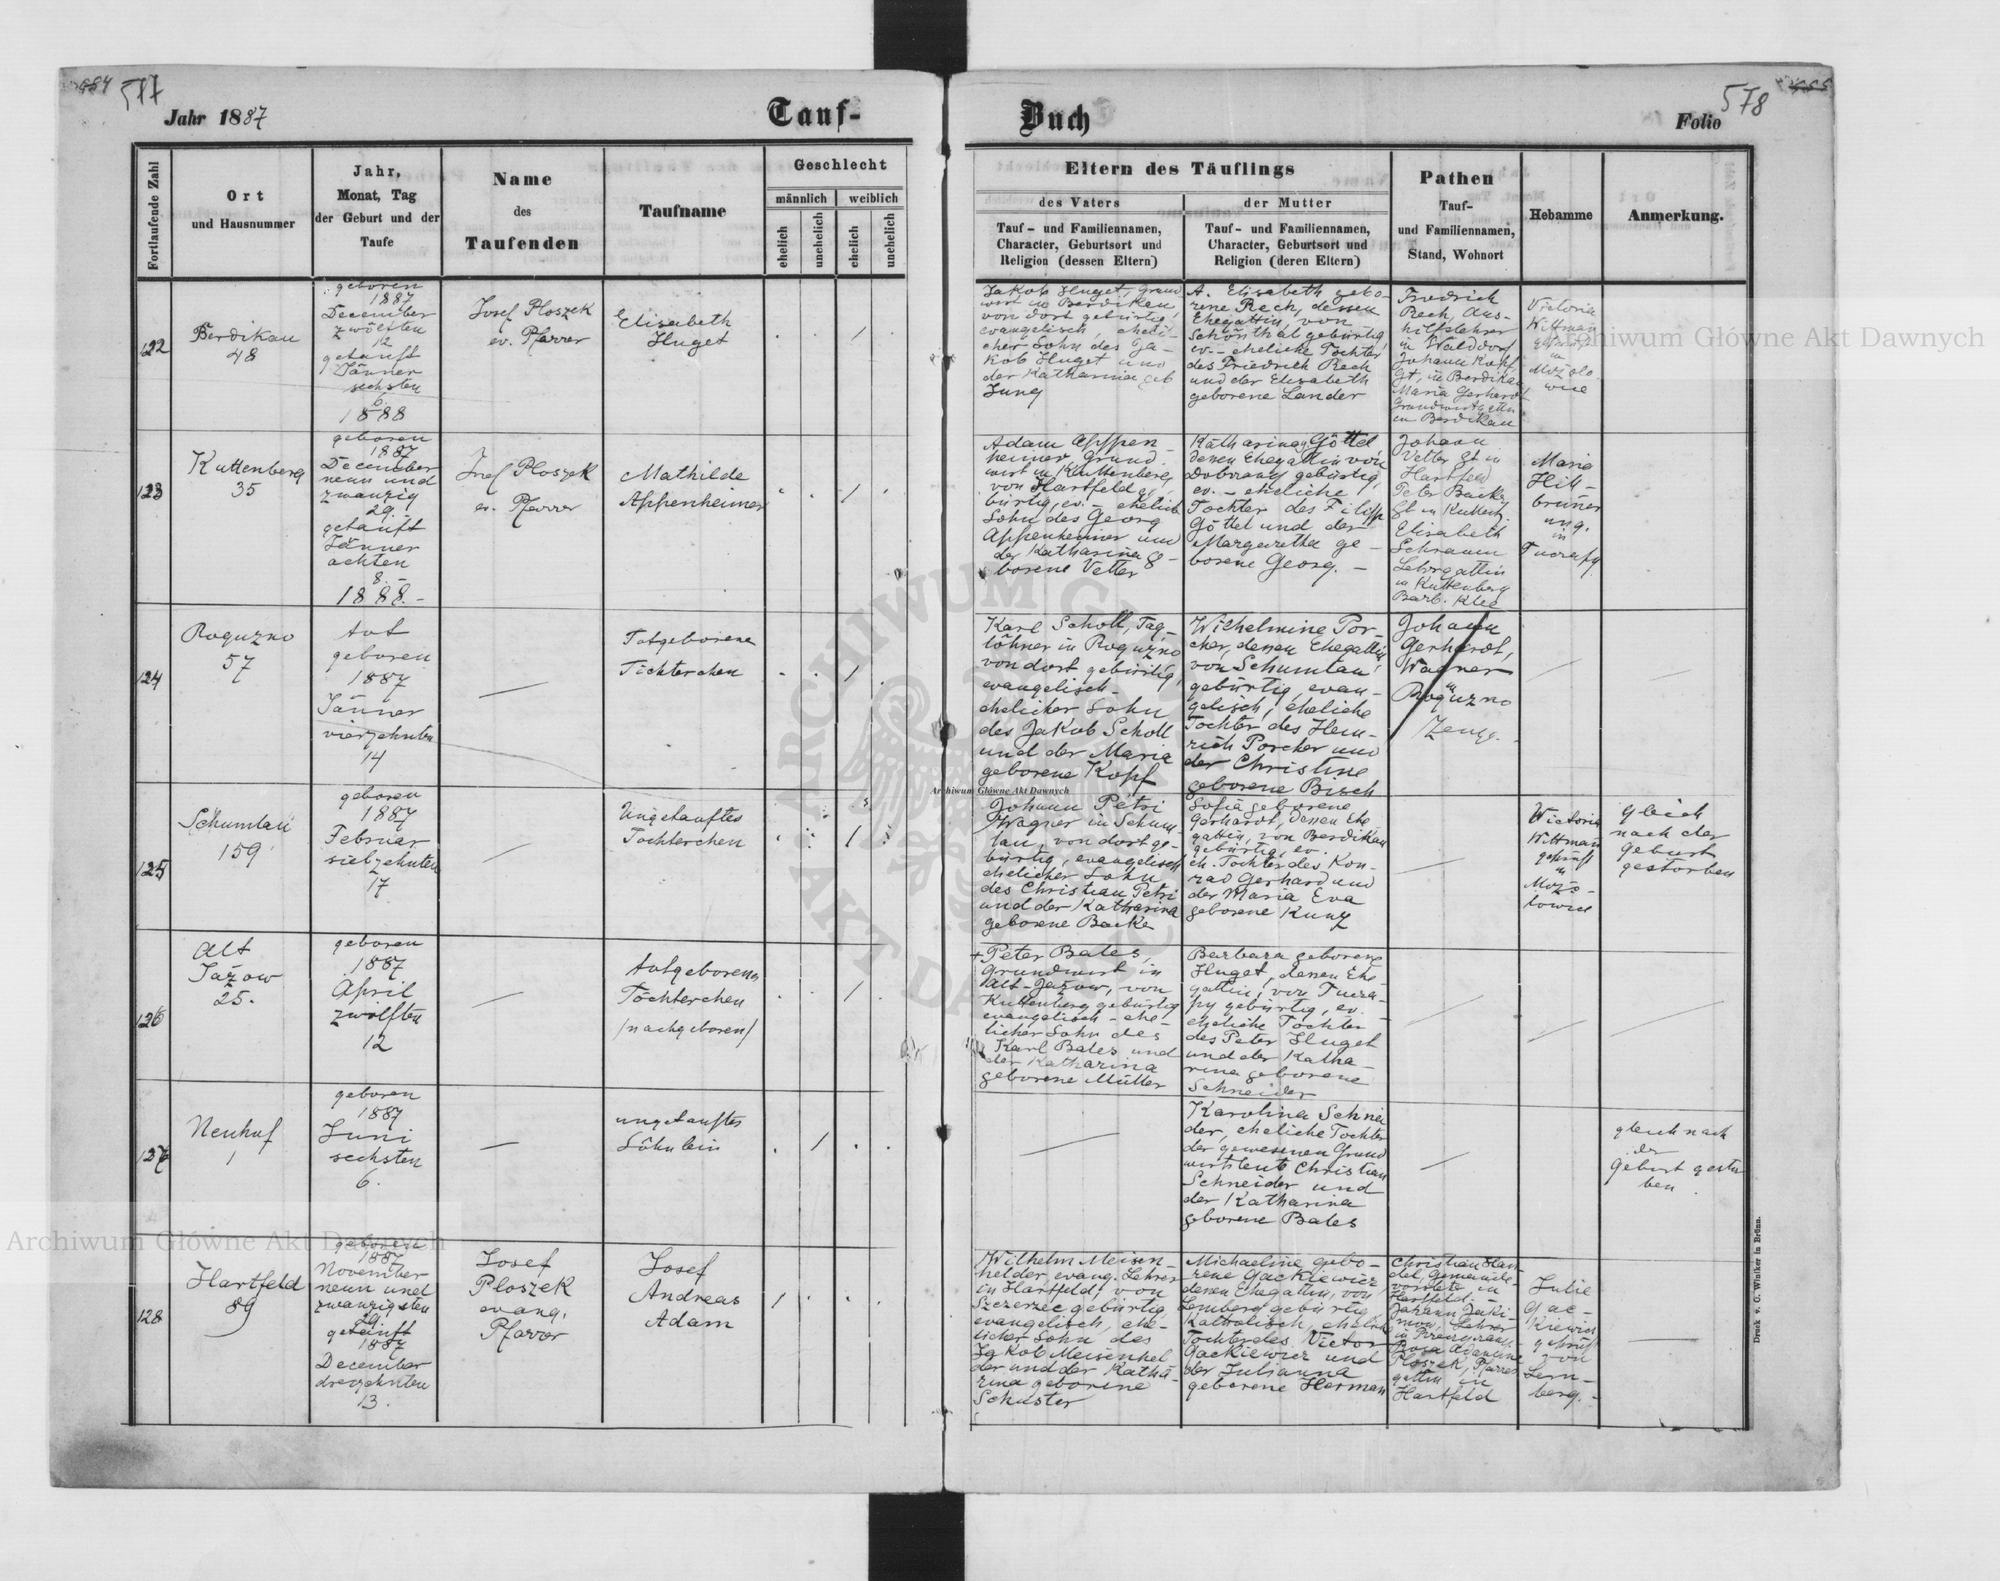 577
578
Jahr 1887
Tauf-
Buch
Folio
Fortlaufende Zahl
Ort
und Hausnummer
Jahr,
Monat, Tag
der Geburt und der
Taufe
Name
des
Taufenden
Taufname
Geschlecht
männlich
weiblich
ehelich
unehelich
ehelich
unehelich
Eltern des Täuflings
des Vaters
Tauf- und Familiennamen,
Character, Geburtsort und
Religion (dessen Eltern)
der Mutter
Tauf- und Familiennamen,
Character, Geburtsort und
Religion (deren Eltern)
Pathen
Tauf-
und Familiennamen,
Stand, Wohnort
Hebamme
Anmerkung.
122
Berdikau
48
geboren
1887
December
zwölften
12
getauft
Jänner
sechsten
6.
1888
Josef Ploszek
ev. Pfarrer
Elisabeth
Huget
Jakob Huget, Grund
wirt in Berdikau
von dort gebürtig,
evangelisch, eheli-
cher Sohn des Ja-
kob Huget und
der Katharina geb
Jung
A. Elisabeth gebo-
rene Rech, dessen
Ehegattin, von
Schönthal gebürtig,
ev. - eheliche Tochter
des Friedrich Rech
und der Elisabeth
geborene Lander
Friedrich
Rech, Aus-
hilfslehrer
in Walddorf
Johann Kopf,
Gt, in Berdikau
Maria Gerhardt
Grundwirtsgattin
in Berdikau
Victoria
Wittman
in
123
Kuttenberg
35
geboren
1887
December
neun und
zwanzig
29.
getauft
Jänner
achten
8. -
1888. -
Josef Ploszek
ev. Pfarrer
Mathilde
Appenheimer
Adam Appen-
heimer Grund-
wirt in Kuttenberg,
von Hartfeld ge-
bürtig, ev. - ehelich
Sohn des Georg
Appenheimer und
der Katharina ge-
borene Vetter
Katharina Göttel
deren Ehegattin von
Dobrzany gebürtig,
ev. - eheliche
Tochter des Filipp
Göttel und der
Margaretha ge-
borene Georg. -
Johann
Vetter Gt in
Hartfeld
Peter
Gt in
Elisabeth
Schramm
in Kuttenberg
Barb. Klee
Maria
Hill-
bruner
ung.
in
Tucrapy.
124
Roguzno
57
tot
geboren
1887
Jänner
vierzehnten
14
Totgeborene
Töchterchen
Karl Scholl, Tag-
löhner in Roguzno
von dort gebürtig,
evangelisch -
ehelicher Sohn
des Jakob Scholl
und der Maria
geborene Kopf
Wilhelmine Por-
cher, dessen Ehegattin
von Schumlau
gebürtig, evan-
gelisch, eheliche
Tochter des Hein-
rich Porcher und
der Christine
geborene Bisch
Johann
Gerhardt,
Wagner
in
Roguzno
Zeuge.
125
Schumlau
159
geboren
1887
Februar
siebzehnten
17
Ungetauftes
Töchterchen
Johann Petri
Wagner in Schum-
lau, von dort ge-
bürtig, evangelisch
ehelicher Sohn
des Christian Petri
und der Katharina
geborene Backe
Sofia geborene
Gerhardt, dessen Ehe-
gattin, von Berdikau
gebürtig, ev.
eh. Tochter des Kon-
rad Gerhard und
der Maria Eva
geborene Kunz
Wictoria
Wittman
geprüft
in
Mozo-
lowice
Gleich
nach der
Geburt
gestorben
126
Alt
Jażow
25.
geboren
1887
April
zwölften
12
totgeborenes
Töchterchen
/nachgeboren/
+ Peter Bales,
Grundwirt in
Alt-Jażow, von
Kuttenberg gebürtig
evangelisch - ehe-
licher Sohn des
Karl Bales und
der Katharina
geborene Müller
Barbara geborene
Huget, dessen Ehe-
gattin, von Tucra-
py gebürtig, ev. -
eheliche Tochter
des Peter Huget
und der Katha-
rina geborene
Schneider
127
Neuhof
1
geboren
1887
Juni
sechsten
6.
ungetauftes
Söhnlein
Karolina Schnei
der, eheliche Tochter
der gewesenen Grund
wirtsleute Christian
Schneider und
der Katharina
geborene Bales
gleich nach
der
Geburt gestor
ben.
128
Hartfeld
89
geboren
1887
November
neun und
zwanzigsten
29.
getauft
1887
December
dreizehnten
13.
Josef
Ploszek
evang.
Pfarrer
Josef
Andreas
Adam
Wilhelm Meisen-
helder, evang. Lehrer
in Hartfeld, von
Szczerzec gebürtig,
evangelisch, ehe-
licher Sohn des
Jakob Meisenhel
der und der Katha-
rina geborine
Schuster
Michaeline gebo-
rene Gackiewicz
deren Ehegattin, von
Lemberg gebürtig,
Katholisch, ehelich
Tochter des Victor
Gackiewicz und
der Julianna
geborene Herman
Christian Han-
del, Gemeinde-
vorsteher in
Hartfeld -
Johann Jaki-
mow, Lehrer
Rosa
Ploszek, Pfarrers
gattin in
Hartfeld
Julie
Gac-
kiewicz
geprüft
von
Lem-
berg. -
Druck v. C. Winiker in Brünn.
Archiwum Główne Akt Dawnych
Archiwum Główne Akt Dawnych
Archiwum Główne Akt Dawnych
ARCHIWUM GŁÓWNE AKT DAWNYCH